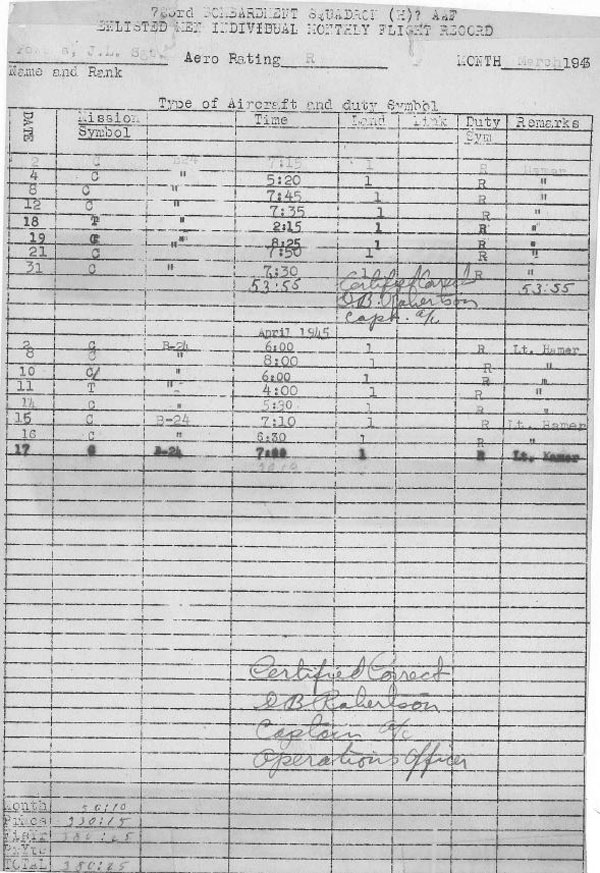 BOMBARDMENT SQUADRON (H)? AAF
ENLISTED MEN INDIVIDUAL MONTHLY FLIGHT RECORD
J.L. Sgt. Aero Rating R MONTH March 1945
Name and Rank
Type of Aircraft and duty Symbol
DATE Mission Symbol Time Land Link Duty Sym Remarks
2 C B-24 7:15 1 R Hamer
4 C " 5:20 1 R "
8 C " 7:45 1 R "
12 C " 7:35 1 R "
18 T " 2:15 1 R "
19 " 8:25 1 R "
21 C 7:50 1 R "
31 C " 7:30 1 R "
53:55 Certified Correct 53:55
Robertson
Capt. a/c
April 1945
2 C B-24 6:00 1 R Lt. Hamer
8 C " 8:00 1 R "
10 C " 6:00 1 R "
11 T " 4:00 1 R "
14 C " 5:30 1 R "
15 C B-24 7:10 1 R Lt. Hamer
16 C " 6:30 1 R "
17 B-24 1 R Lt. Hamer
Certified Correct
B Robertson
Captain a/c
Operations Officer
Month 50:10
TOTAL